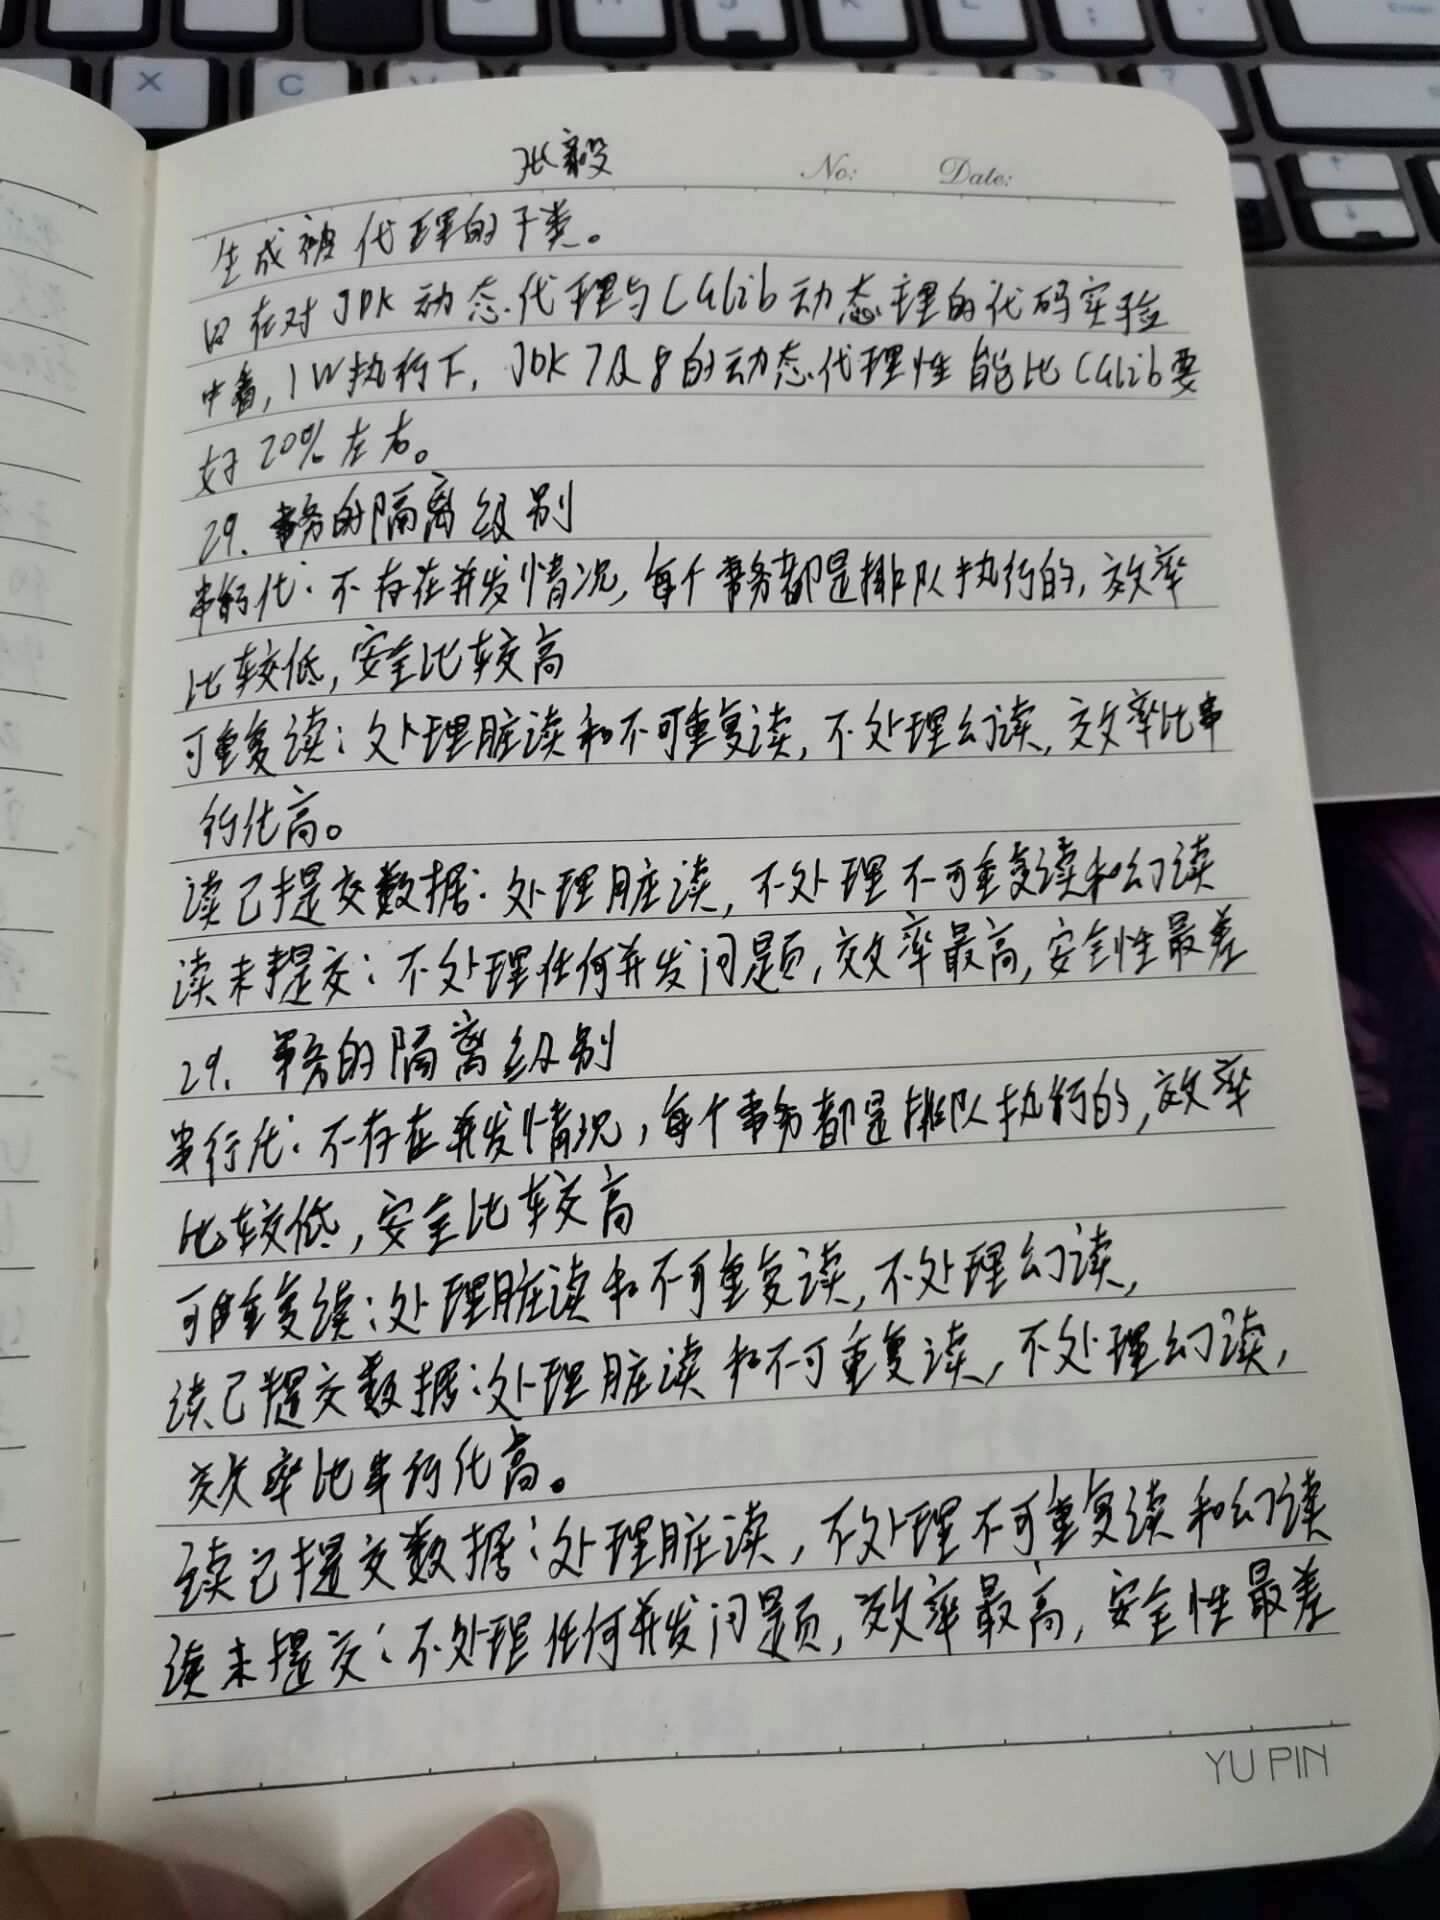 张毅
No: Date:
生成被代理的子类。
但在对JDK动态代理与CGlib动态理的代码实验
中看,1W执行下,JDK7及8的动态代理性能比CGlib要
好20%左右。
29.事务的隔离级别
串行化:不存在并发情况,每个事务都是排队执行的,效率
比较低,安全比较高
可重复读:处理脏读和不可重复读,不处理幻读,效率比串
行化高。
读已提交数据:处理脏读,不处理不可重复读和幻读
读未提交:不处理任何并发问题,效率最高,安全性最差
29.事务的隔离级别
串行化:不存在并发情况,每个事务都是排队执行的,效率
比较低,安全比较高
可重复读:处理脏读和不可重复读,不处理幻读,
读已提交数据:处理脏读和不可重复读,不处理幻读,
效率比串行化高。
读已提交数据:处理脏读,不处理不可重复读和幻读
读未提交:不处理任何并发问题,效率最高,安全性最差
YU PIN